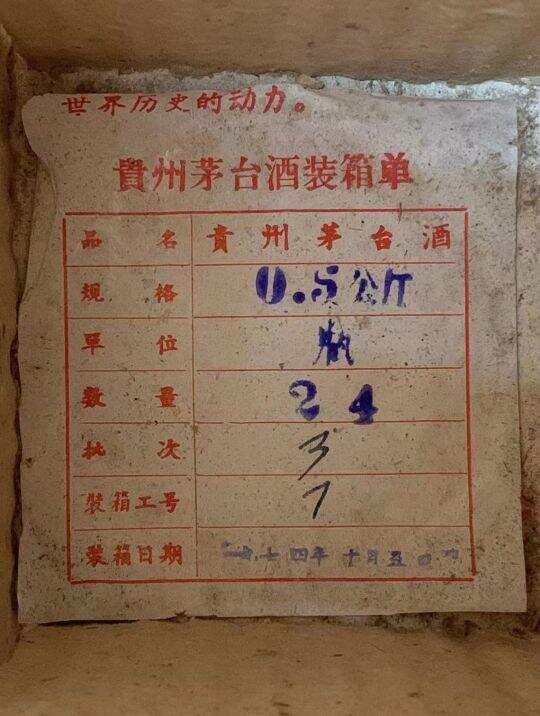 世界历史的动力。
貴州茅台酒装箱单
品名 貴州茅台酒
規格 0.5公斤
單位 瓶
数量 24
批次 3
裝箱工号 7
裝箱日期 一九七四年十月五日